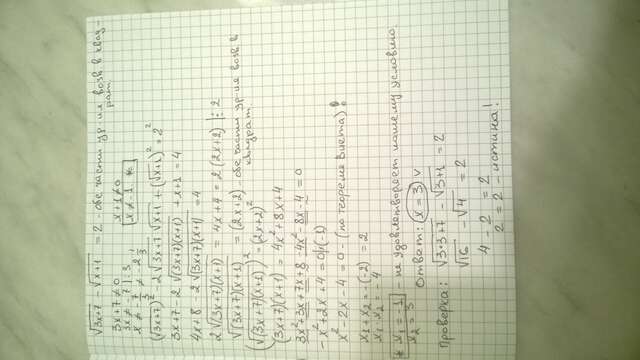 √3x+7 - √x+1 = 2 - обе части ур-ия возв. в квад-
рат.
3x+7≠0 x+1≠0
3x ≠ -7 | :3 x ≠ -1 *
x ≠ -7/3 ≠ -2 1/3
(√3x+7)² - 2√3x+7 √x+1 + (√x+1)² = 2²
3x+7 - 2√(3x+7)(x+1) + x+1 = 4
4x+8 - 2√(3x+7)(x+1) = 4
2√(3x+7)(x+1) = 4x+4 = 2(2x+2) | : 2
√(3x+7)(x+1) = (2x+2) - обе части ур-ия возв. в
квадрат
(√(3x+7)(x+1))² = (2x+2)²
(3x+7)(x+1) = 4x²+8x+4
3x²+3x+7x+8-4x²-8x-4 = 0
-x²+2x+4 = 0 |·(-1)
x²-2x-4 = 0 - (по теореме Виета) !
x₁+x₂ = -(-2) = 2
x₁·x₂ = -4
* x₁ = -1 - не удовлетворяет нашему условию.
x₂ = 3
Ответ: x = 3 v
Проверка: √3·3+7 - √3+1 = 2
√16 - √4 = 2
4 - 2 = 2
2 = 2 - истина!